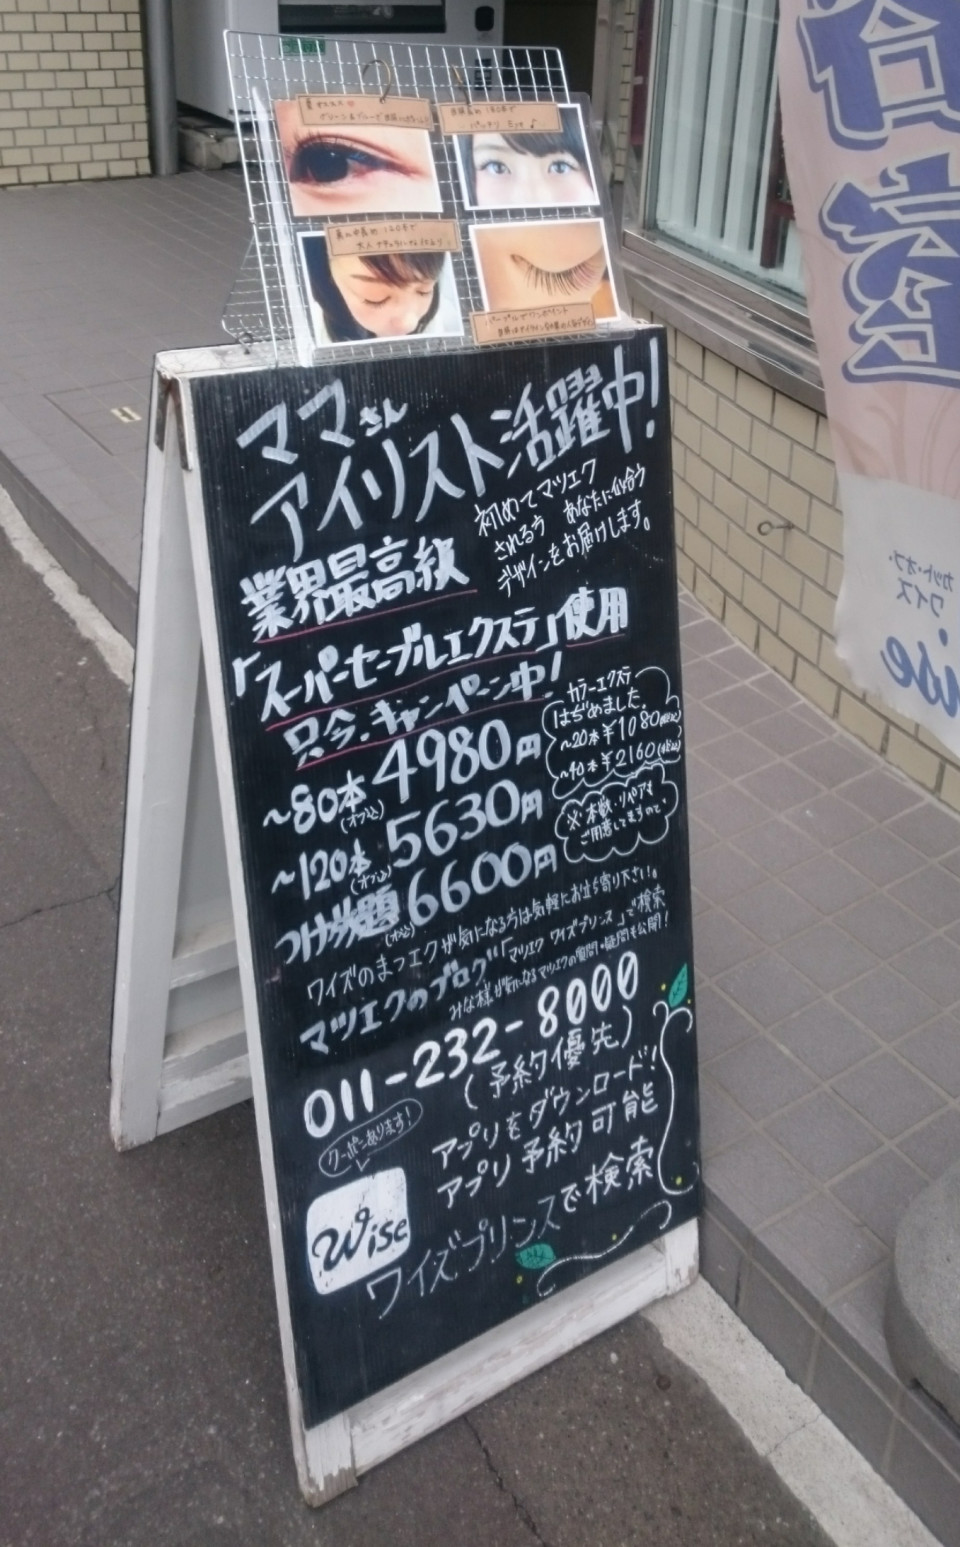 ママさん
アイリスト活躍中!
初めてマツエク
される方 あなたに似合う
デザインをお届けします。
業界最高級
「スーパーセーブルエクステ」使用
只今、キャンペーン中!
~80本 4980円
(オフ込)
~120本 5630円
(オフ込)
つけ放題 6600円
(オフ込)
カラーエクステ
はぢめました。
~20本¥1080(税込)
~40本¥2160(税込)
※本数・リペアも
ご用意してますので、
ワイズのまつエクが気になる方は気軽にお立ち寄り下さい。
マツエクのブログ「マツエク ワイズプリンス」で検索
みな様が気になるマツエクの質問・疑問も公開!
011-232-8000
(予約優先)
クーポンあります!
アプリをダウンロード!
アプリ予約可能
Wise
ワイズプリンスで検索
カット・オブ・
ワイズ